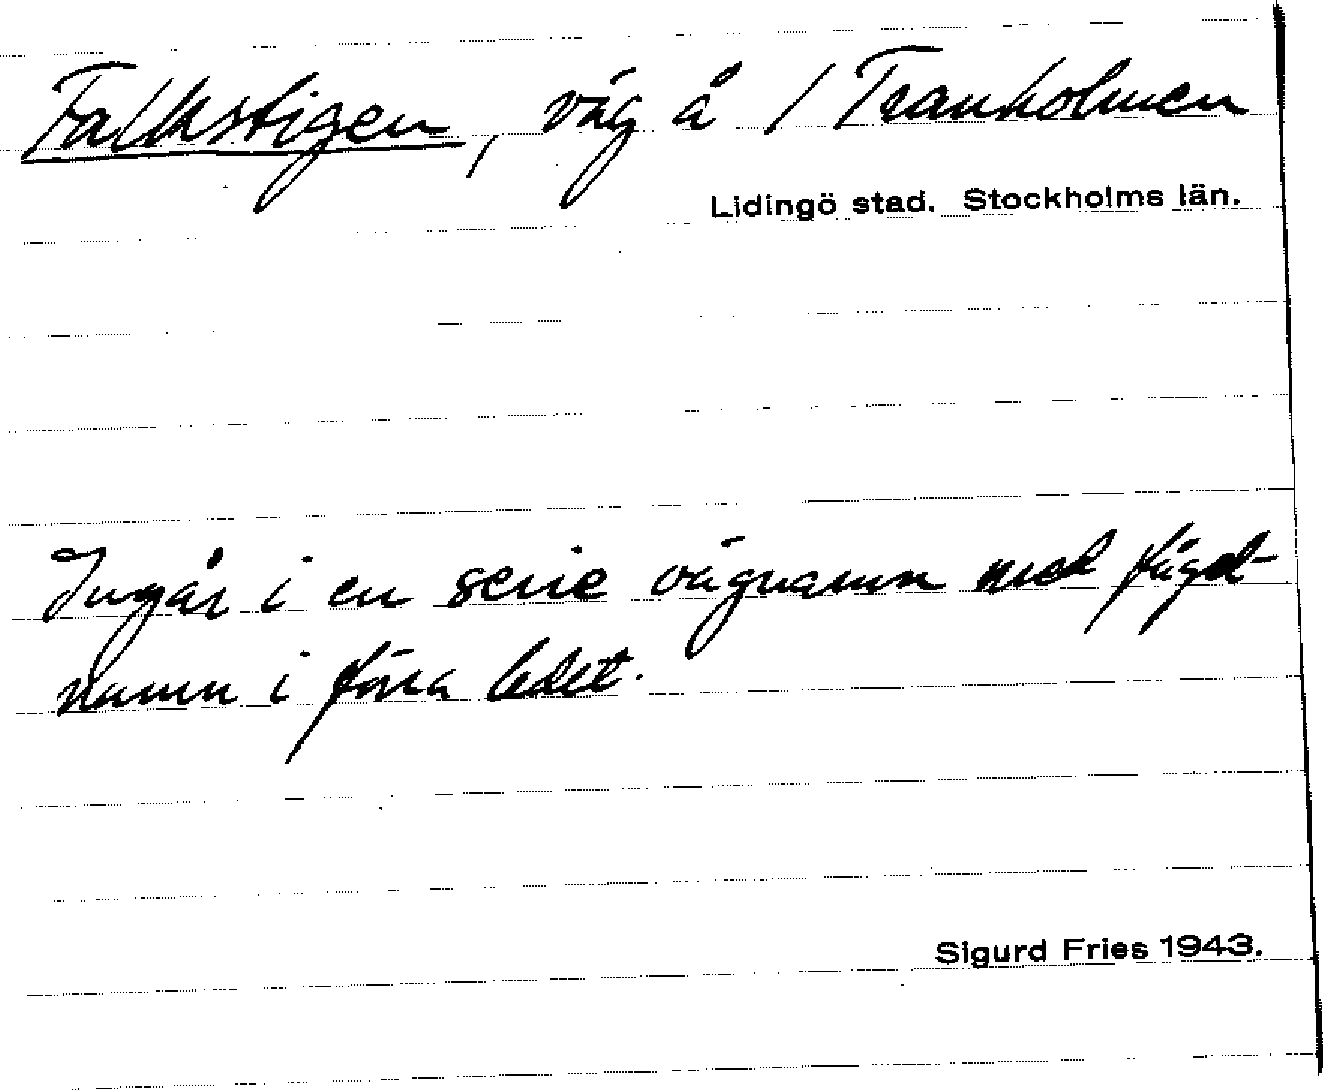 Falkstigen, väg å / Tranholmen
Lidingö stad. Stockholms län.
Ingår i en serie vägnamn med fågel-
namn i förra ledet.
Sigurd Fries 1943.